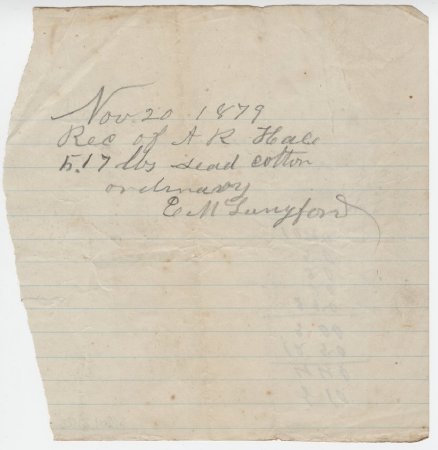 Nov. 20 1879
Rec of A R Hale
517 lbs sead cotton
ordinary
E M Langford